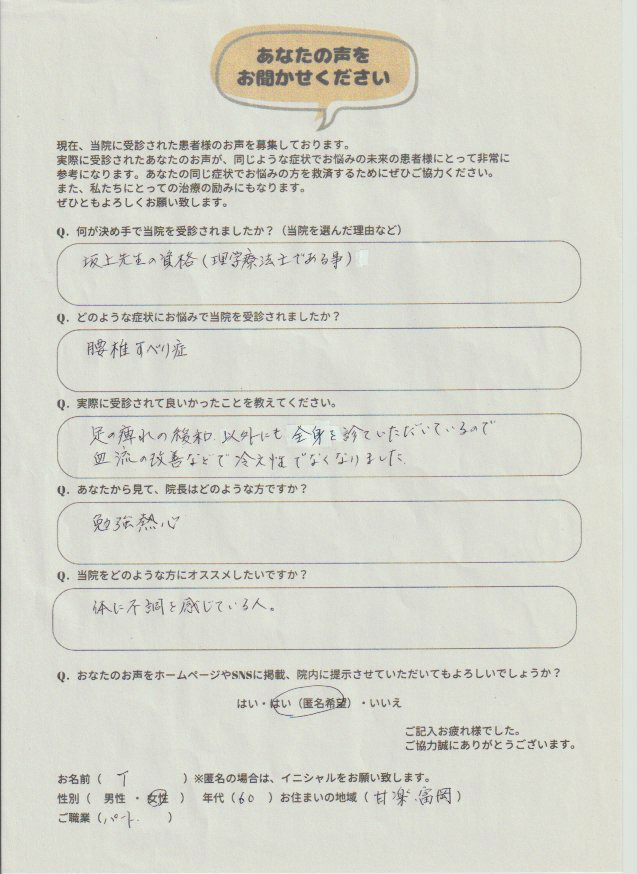 あなたの声を
お聞かせください
現在、当院に受診された患者様のお声を募集しております。
実際に受診されたあなたのお声が、同じような症状でお悩みの未来の患者様にとって非常に
参考になります。あなたの同じ症状でお悩みの方を救済するためにぜひご協力ください。
また、私たちにとっての治療の励みにもなります。
ぜひともよろしくお願い致します。
Q. 何が決め手で当院を受診されましたか？（当院を選んだ理由など）
坂上先生の資格(理学療法士である事)
Q. どのような症状にお悩みで当院を受診されましたか？
腰椎すべり症
Q. 実際に受診されて良いかったことを教えてください。
足の痺れの緩和. 以外にも 全身を診ていただいているので
血流の改善などで冷え性でなくなりました.
Q. あなたから見て、院長はどのような方ですか？
勉強熱心
Q. 当院をどのような方にオススメしたいですか？
体に不調を感じている人。
Q. おなたのお声をホームページやSNSに掲載、院内に提示させていただいてもよろしいでしょうか？
はい・はい（匿名希望）・いいえ
ご記入お疲れ様でした。
ご協力誠にありがとうございます。
お名前（ T ）※匿名の場合は、イニシャルをお願い致します。
性別（ 男性 ・ 女性 ） 年代（60 ）お住まいの地域（ 甘楽.富岡 ）
ご職業（パート. ）